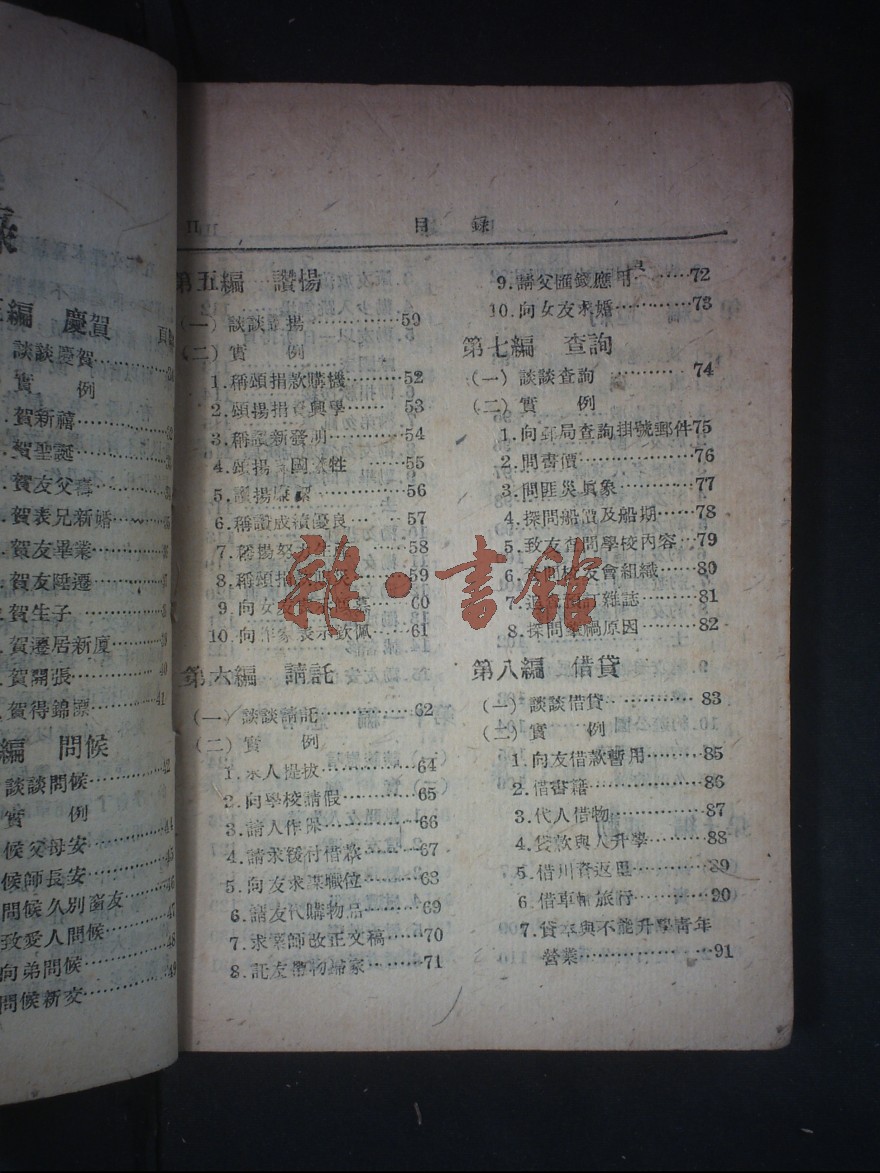 編 慶賀
頁
談談慶賀
實 例
賀新禧
賀聖誕
賀友父壽
賀表兄新婚
賀友畢業
賀友陞遷
賀生子
賀遷居新廈
賀開張 40
賀得錦標 41
編 問候
談談問候 42
實 例
候父母安 44
候師長安 45
問候久別窗友 46
致愛人問候 47
向弟問候 48
問候新交 49
II 目錄
第五編 讚揚
(一)談談 揚 50
(二)實 例
1.稱頌捐款購機 52
2.頌揚捐 興學 53
3.稱讚新發明 54
4.頌揚 國 牲 55
5. 揚廉 56
6.稱讚成績優良 57
7. 58
8.稱頌捐 59
9.向女友表示 慕 60
10.向作家表示欽佩 61
第六編 請託
(一)談談請託 62
(二)實 例
1.求人提拔 64
2.向學校請假 65
3.請人作保 66
4.請求緩付借款 67
5.向友求謀職位 68
6.請友代購物品 69
7.求業師改正文稿 70
8.託友帶物歸家 71
9.請父匯錢應用 72
10.向女友求婚 73
第七編 查詢
(一)談談查詢 74
(二)實 例
1.向郵局查詢掛號郵件 75
2.問書價 76
3.問匪災真象 77
4.探問船費及船期 78
5.致友查問學校內容 79
6.查問校友會組織 80
7. 訂雜誌 81
8.探問肇禍原因 82
第八編 借貸
(一)談談借貸 83
(二)實 例
1.向友借款暫用 85
2.借書籍 86
3.代人借物 87
4.貸款與人升學 88
5.借川資返里 89
6.借車輛旅行 90
7.貸 與不能升學青年
營業 91
雜·書館